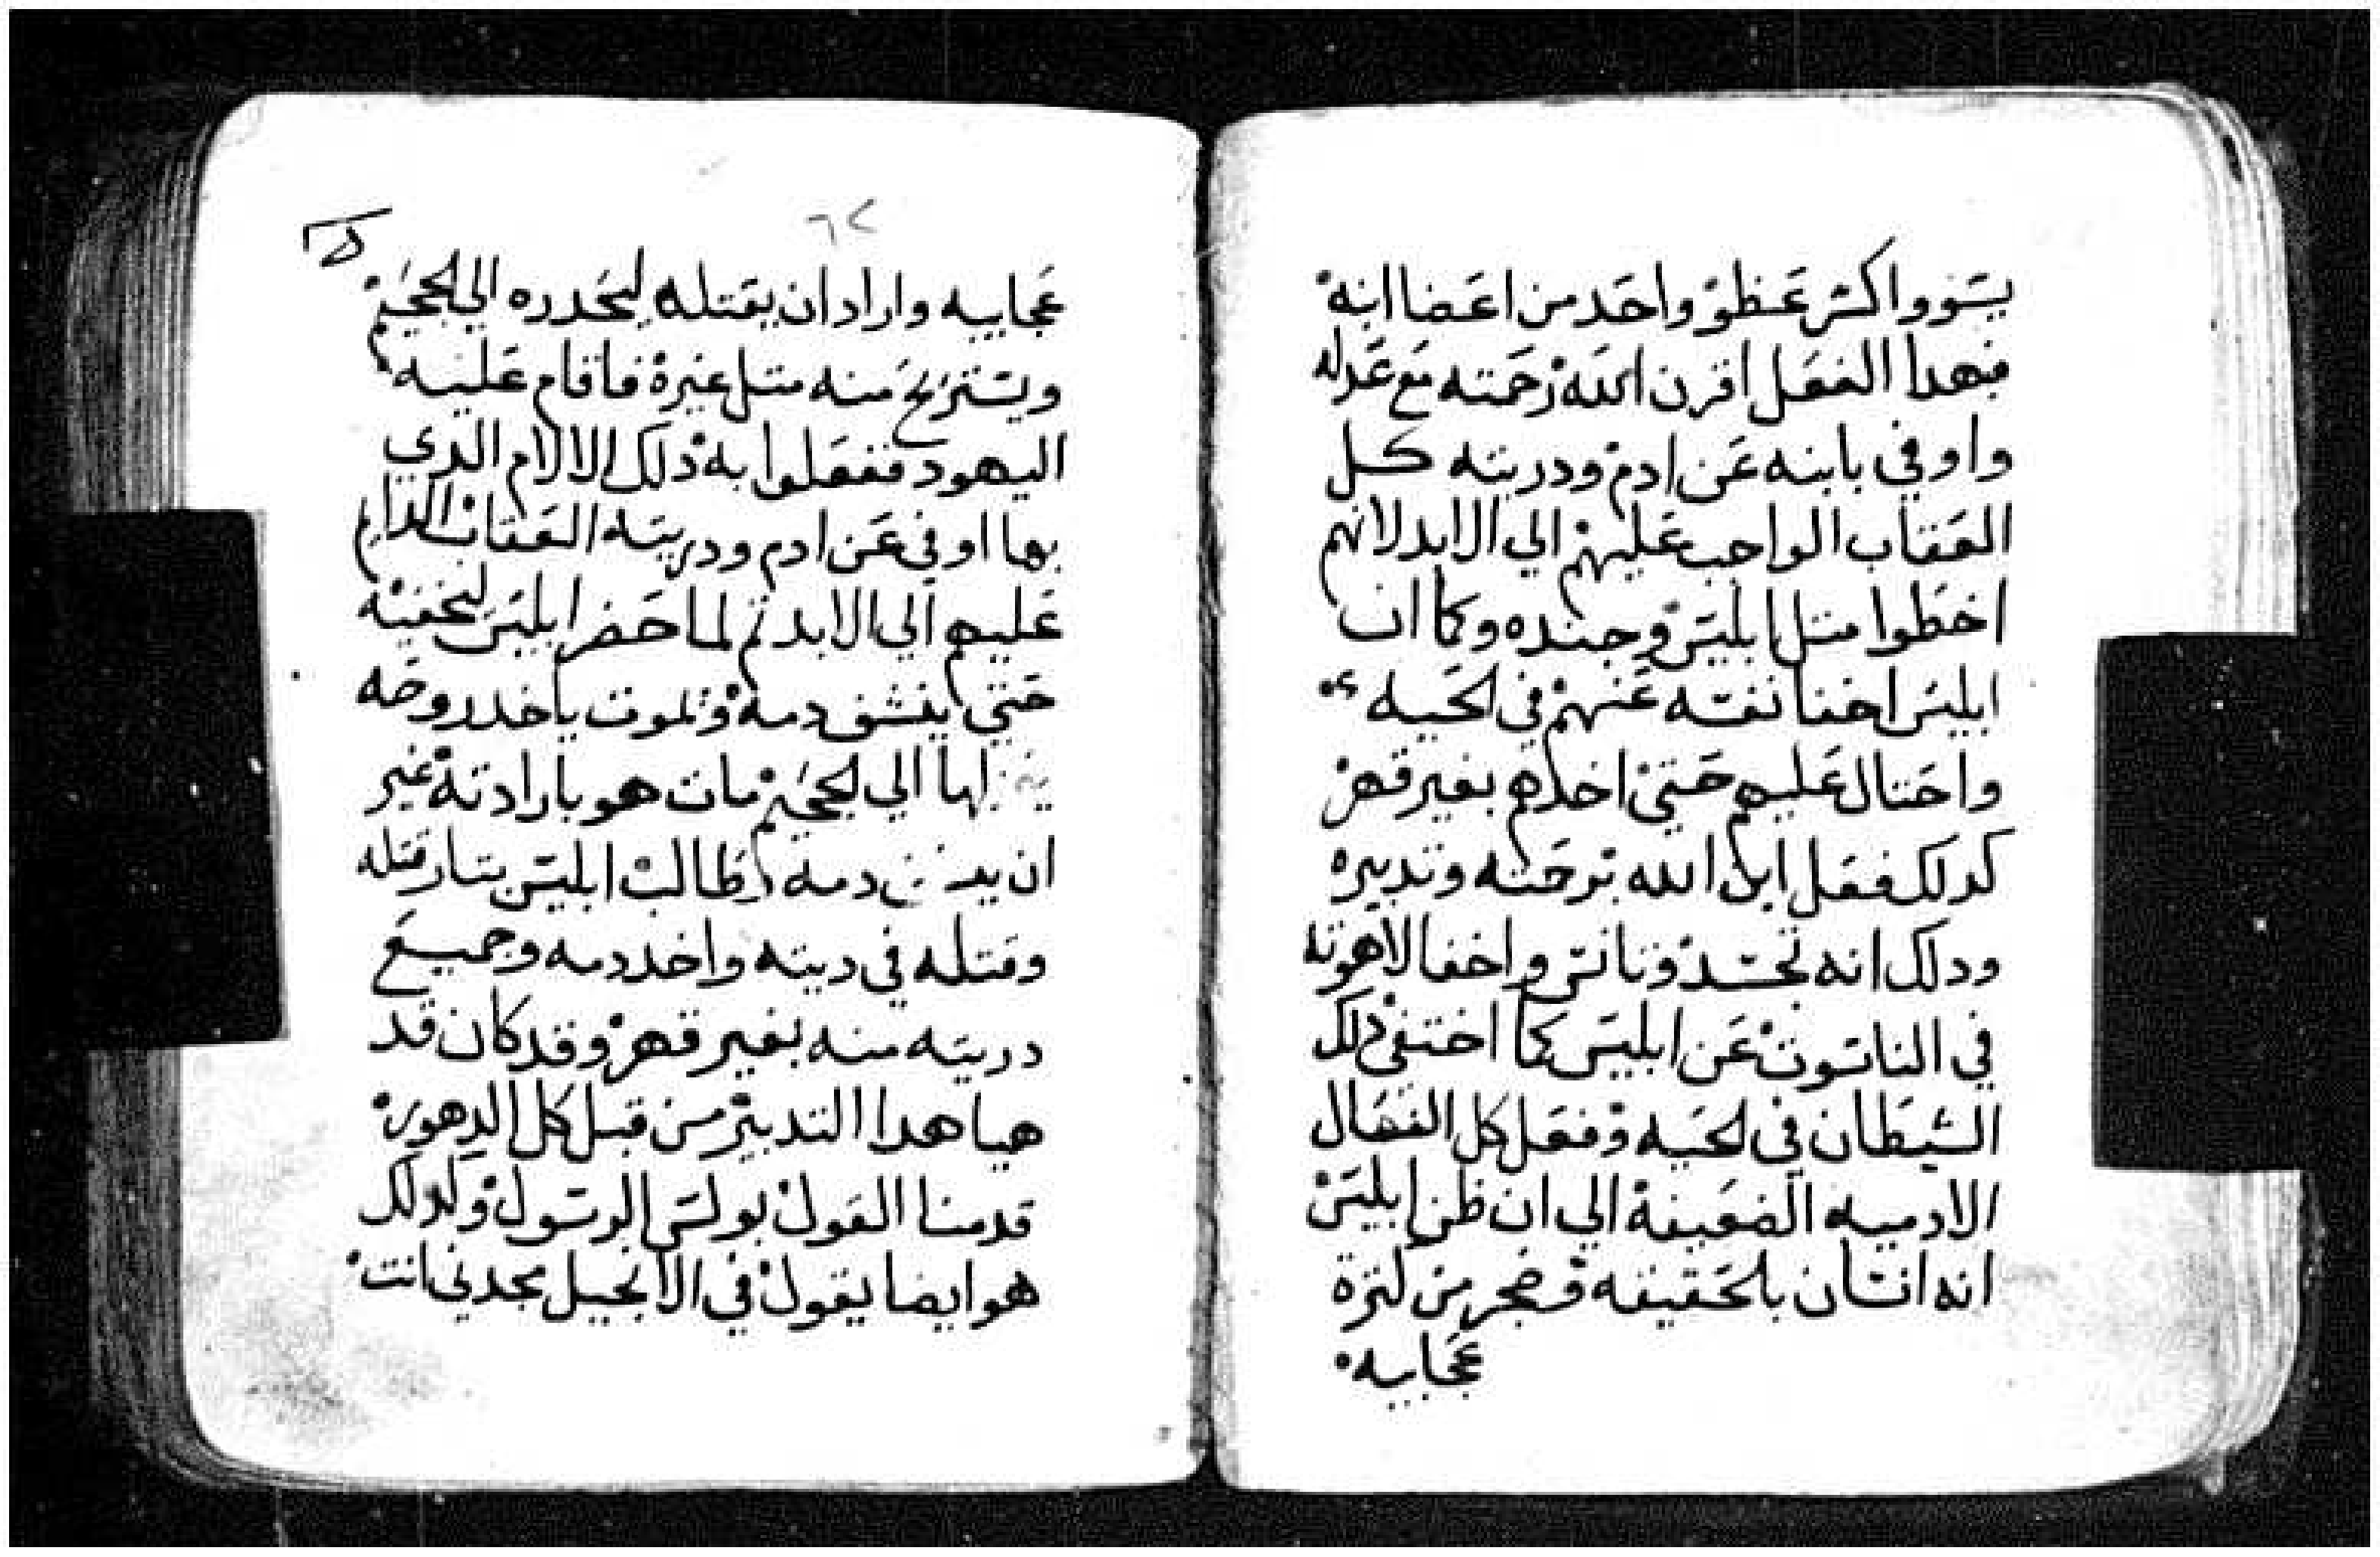 يسووا كتر عظو واحد من اعضا ابنه
فبهدا الفعل اقرن الله رحمته مع عدله
واوفي بابنه عن ادم ودريته كل
العقاب الواجب عليهم الي الابد لانهم
اخطوا متل ابليس وجنده وكما ان
ابليس اخفا نفسه عنهم في الحيه
واحتال عليهم حتي اخدهم بغير قهر
كدلك فعل ابن الله برحمته وتدبيره
ودلك انه تجسد وتانس واخفا لاهوته
في الناسوت عن ابليس كما اختفي دلك
الشيطان في الحيه وفعل كل الفعال
الادميه الضعيفة الي ان ظن ابليس
انه انسان بالحقيقه وضجر من كترة
عجابيه
٦٢
عجابيه واراد ان يقتله ليحدره الي الجحيم
ويستريح منه متل غيره فاقام عليه
اليهود ففعلوا به دلك الالام الدي
بها اوفي عن ادم ودريته العقاب الدايم
عليهم الي الابد تم لما حضر ابليس لخفيه
حتي ينشف دمه ويموت ياخد روحه
الي الجحيم مات هو بارادته غير
ان دمه طالب ابليس بتار قتله
وقتله في ديته واخد دمه وجميع
دريته منه بغير قهر وقد كان قد
هيا هدا التدبير من قبل كل الدهور
قدمنا القول بولس الرسول ولدلك
هو ايضا يقول في الانجيل مجدني انت